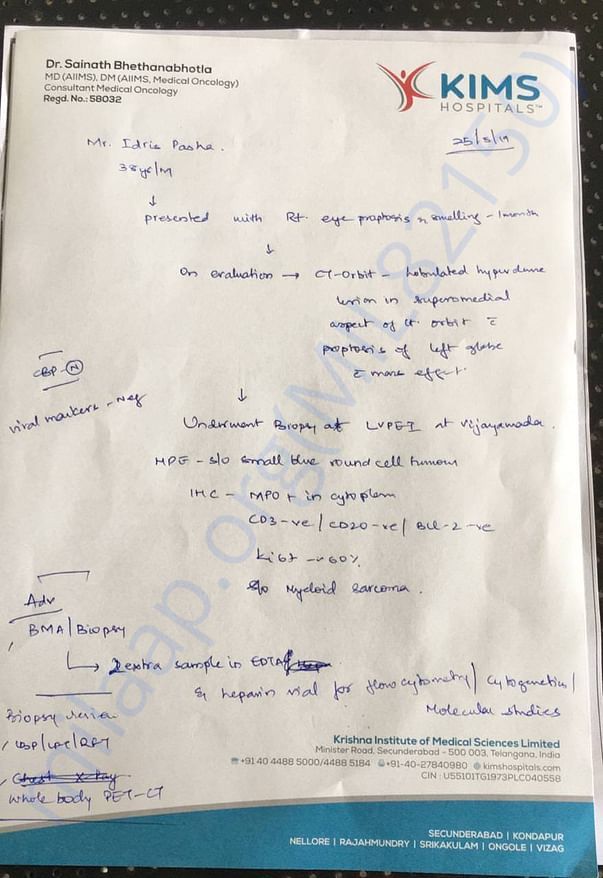 Dr. Sainath Bhethanabhotla
MD (AIIMS), DM (AIIMS, Medical Oncology)
Consultant Medical Oncology
Regd. No.: 58032
KIMS
HOSPITALS™
25/5/19
Mr. Idris Pasha.
38yr/M
↓
presented with Rt. eye proptosis n swelling - 1month
↓
On evaluation → CT-Orbit - Lobulated hyperdense
lesion in superomedial
aspect of Lt. orbit c̄
proptosis of left globe
c̄ mass effect.
CBP - N
viral markers - Neg
↓
Underwent Biopsy at LVPEI at Vijayawada.
HPE - s/o small blue round cell tumour
IHC - MPO + in cytoplasm
CD3 -ve / CD20 -ve / BCL-2 -ve
Ki67 - ~60%
s/o Myeloid Sarcoma.
Adv
BMA/Biopsy
→ 2 extra sample in EDTA
& heparin vial for flowcytometry/ cytogenetics/
Molecular studies
Biopsy review
CBP/LFT/RFT
Chest X Ray
Whole body PET-CT
Krishna Institute of Medical Sciences Limited
Minister Road, Secunderabad - 500 003, Telangana, India
+91 40 4488 5000/4488 5184 +91-40-27840980 kimshospitals.com
CIN : U55101TG1973PLC040558
SECUNDERABAD | KONDAPUR
NELLORE | RAJAHMUNDRY | SRIKAKULAM | ONGOLE | VIZAG
milaap.org(MIL82150)